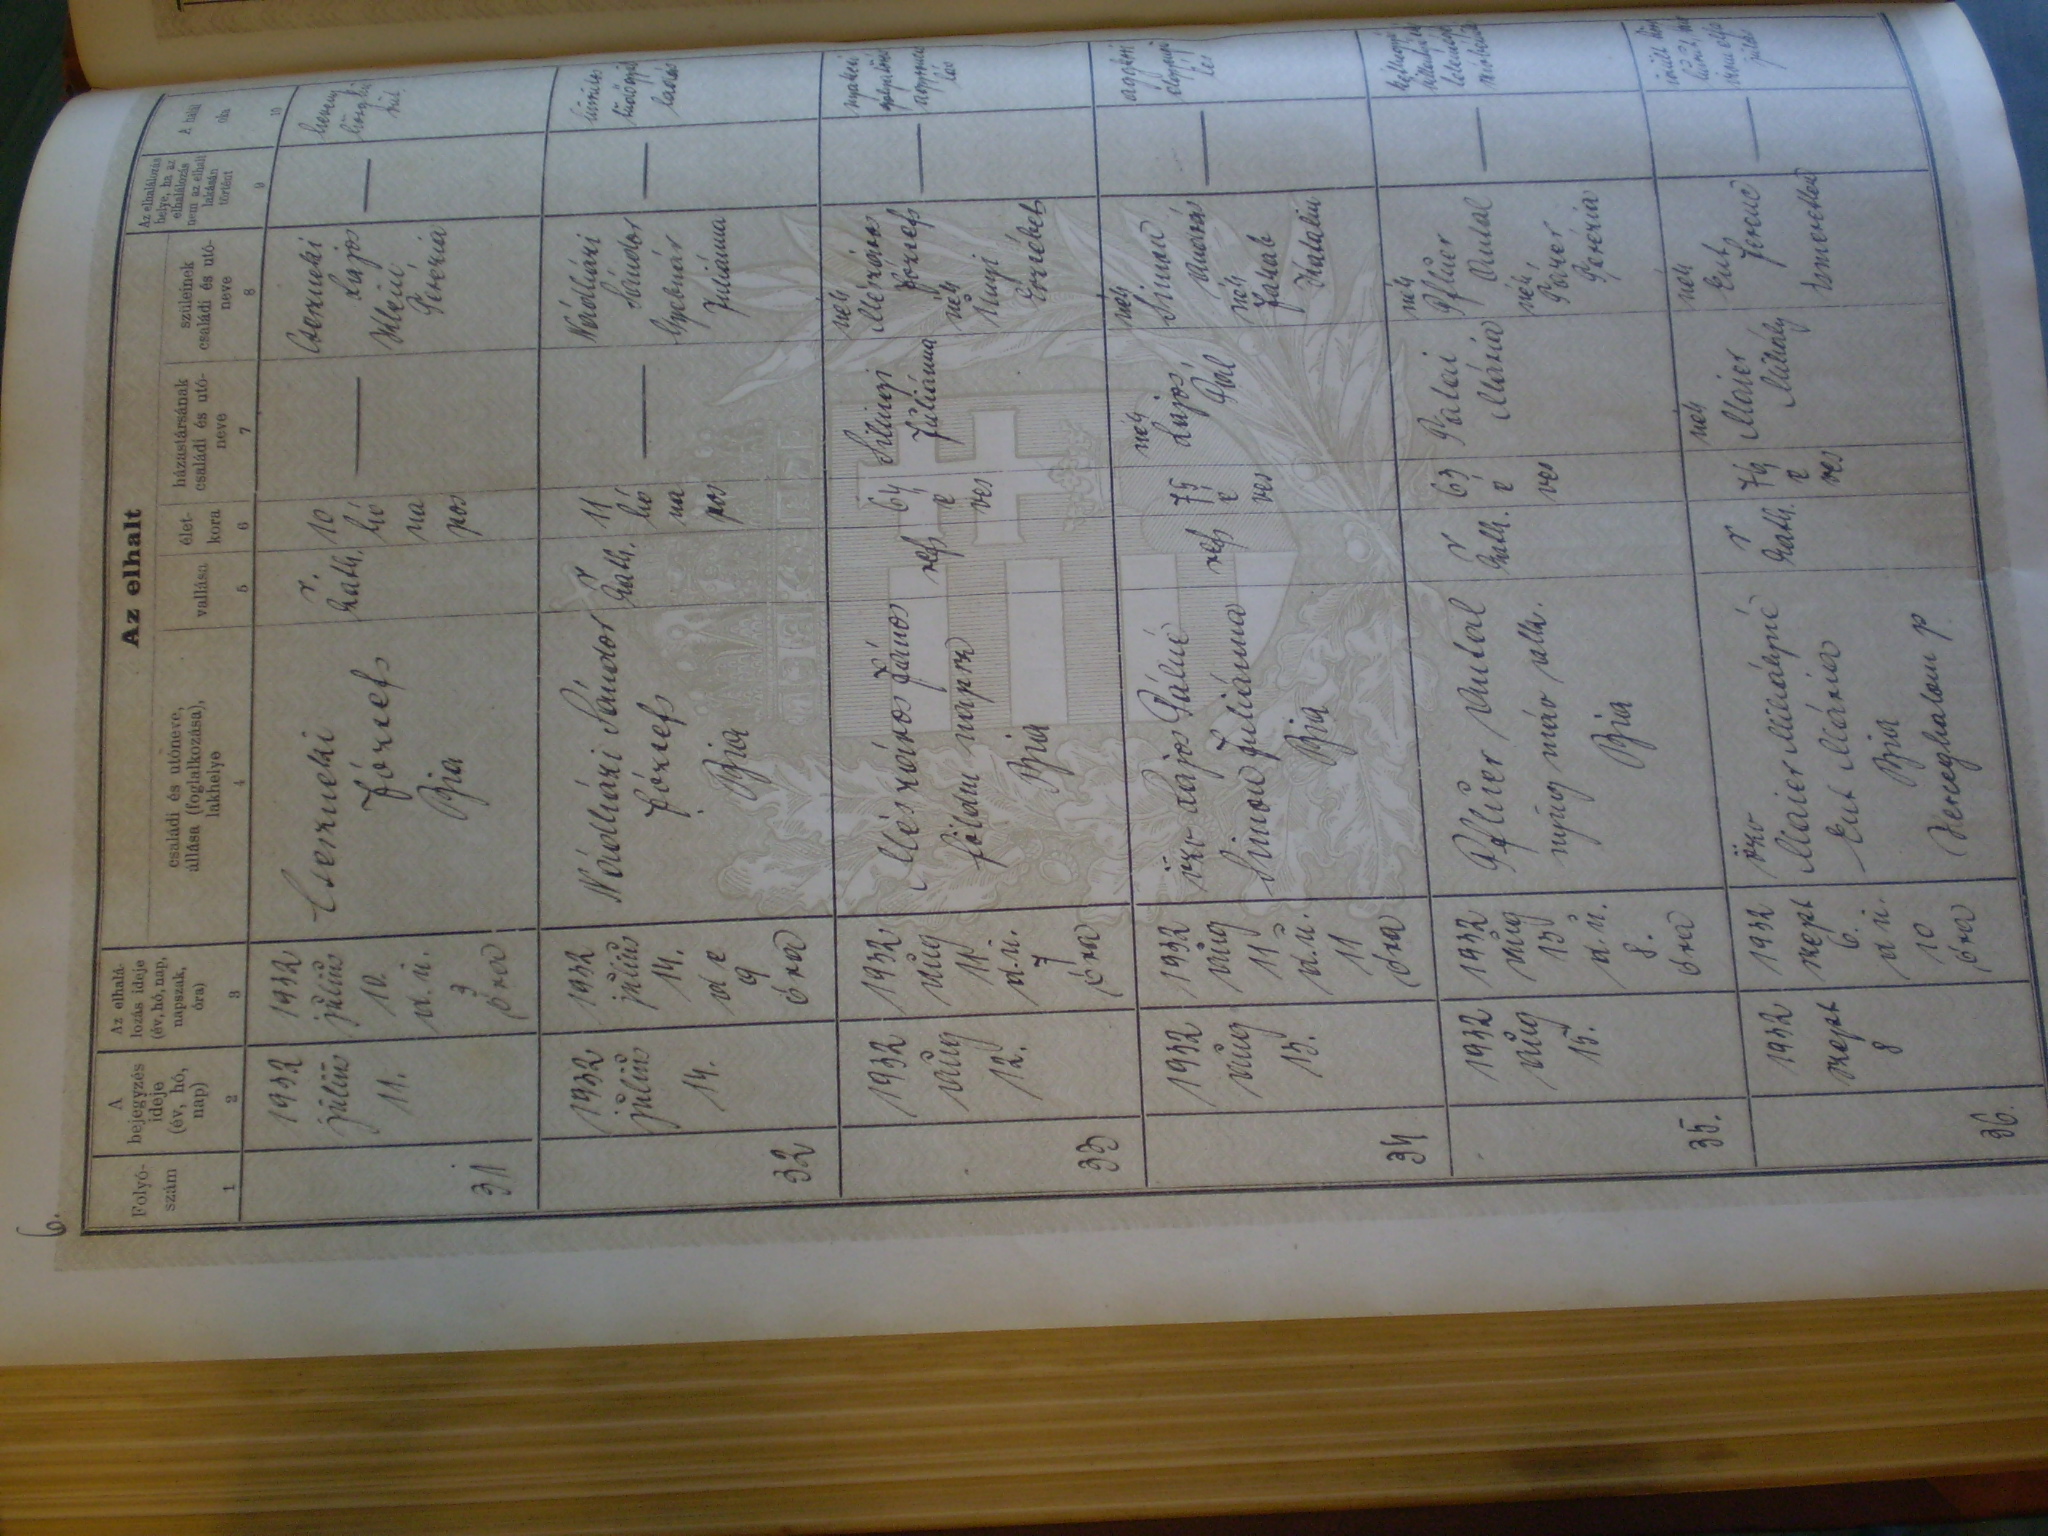 6.
Az elhalt
Folyó-
szám
1
A
bejegyzés
ideje
(év, hó,
nap)
2
Az elhalá-
lozás ideje
(év, hó, nap,
napszak,
óra)
3
családi és utóneve,
állása (foglalkozása),
lakhelye
4
vallása
5
élet-
kora
6
házastársának
családi és utó-
neve
7
szüleinek
családi és utó-
neve
8
Az elhalálozás
helye, ha az
elhalálozás
nem az elhalt
lakásán
történt
9
A halál
oka
10
31
1932
július
11.
1932
július
10.
d.u.
3
óra
József
Bia
r.
kath.
10
hó
na
pos
—
Lajos
Klein
Terézia
—
32
1932
július
14.
1932
július
14.
d e
9
óra
Nádházi Sándor
József
Bia
r
kath.
11
hó
na
pos
—
Nádházi
Sándor
Juliánna
—
33
1932
aug
12.
1932
aug
11.
d.u.
7
óra
Mészáros János
földm napsz
Bia
ref
64
é
ves
Szilágyi
Juliánna
néh
Mészáros
József
néh
Erzsébet
—
34
1932
aug
13.
1932
aug
11
d.u.
11
óra
özv Lajos Pálné
Simon Juliánna
Bia
ref
75
é
ves
néh
Lajos
Pál
néh
Simon
András
néh
Jakab
Katalin
—
35.
1932
aug
15.
1932
aug
13
d.u.
8.
óra
Pflier Antal
Bia
r
kath.
63
é
ves
Palai
Mária
néh
Pflier
Antal
néh
Terézia
—
36.
1932
szept
8
1932
szept
6.
d u.
10
óra
özv
Maier Mihályné
Mária
Bia
Herceghalom p
r
kath.
74
é
ves
néh
Maier
Mihály
néh
Ferenc
ismeretlen
—